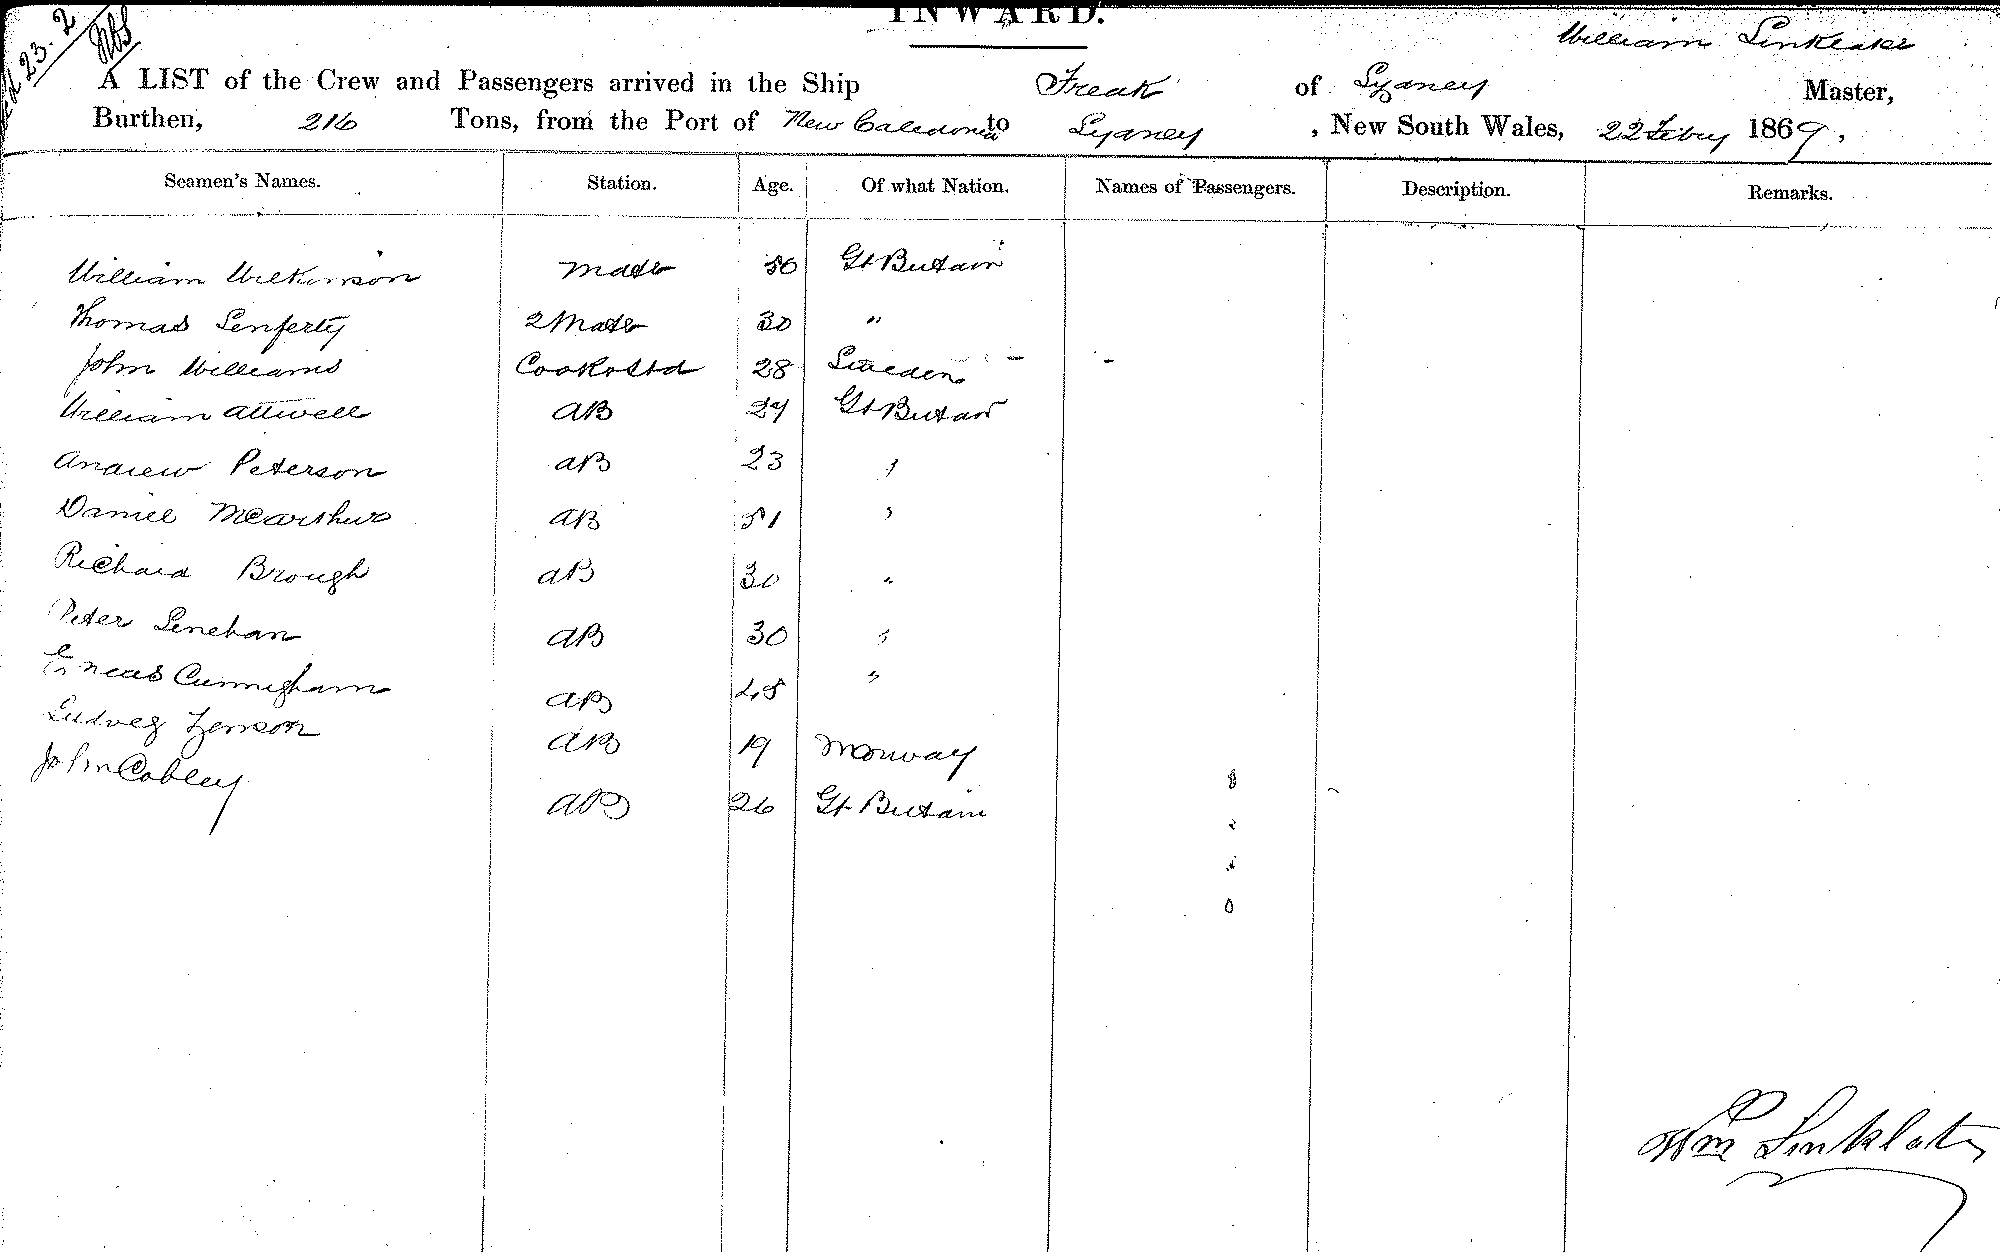 INWARD.
23.2
William Linklater
A LIST of the Crew and Passengers arrived in the Ship Freak of Sydney Master,
Burthen, 216 Tons, from the Port of New Caledonia to Sydney , New South Wales, 22 Feby 1869.
Seamen's Names. Station. Age. Of what Nation. Names of Passengers. Description. Remarks.
William Wilkinson Mate 50 Gt Britain
Thomas 2 Mate 30 "
John Williams Cook & Std 28 Sweden
William Attwell AB 27 Gt Britain
Andrew Peterson AB 23 "
Daniel McArthur AB 51 "
Richard Brough AB 30 "
Peter Lenehan AB 30 "
Eneas Cunnigham AB 48 "
Ludveg AB 19 Norway
John Cobley AB 26 Gt Britain
Wm Linklater